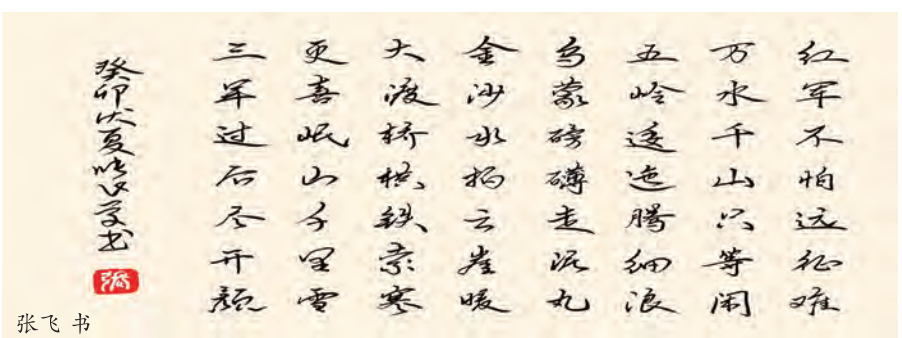 红军不怕远征难
万水千山只等闲
五岭逶迤腾细浪
乌蒙磅礴走泥丸
金沙水拍云崖暖
大渡桥横铁索寒
更喜岷山千里雪
三军过后尽开颜
癸卯伏夏
张飞 书